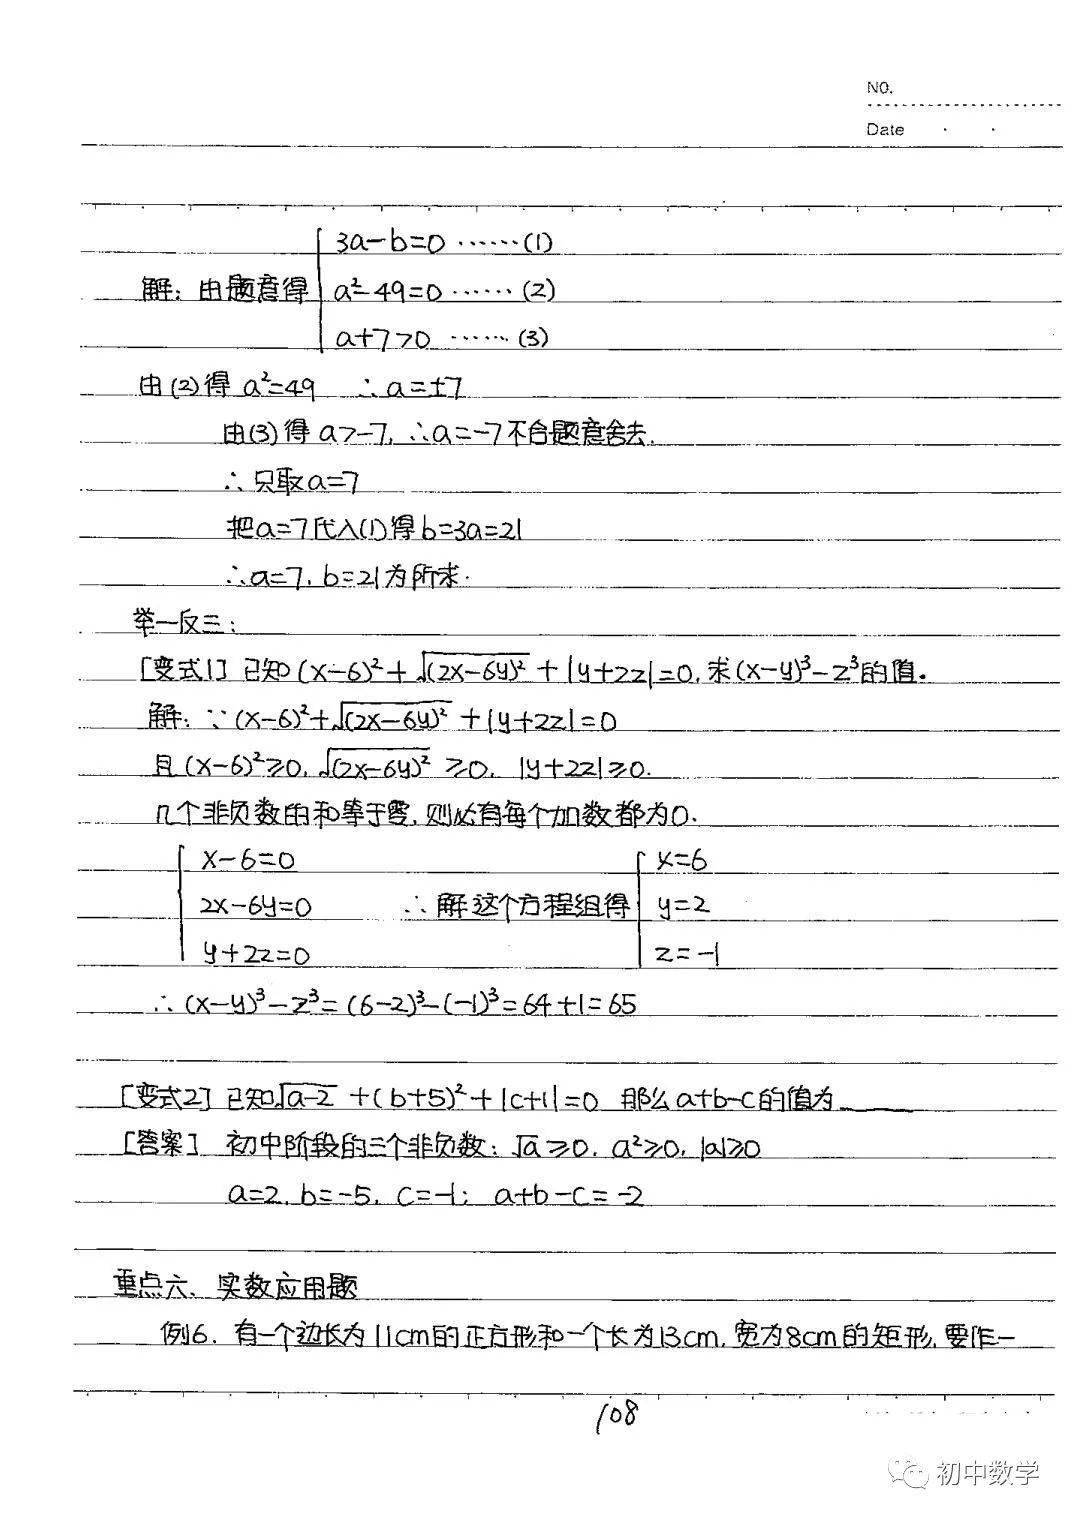 NO.
Date
3a-b=0 ……(1)
解：由题意得 a²-49=0 ……(2)
a+7>0 ……(3)
由(2)得 a²=49 ∴a=±7
由(3)得 a>-7, ∴a=-7不合题意舍去.
∴只取a=7
把a=7代入(1)得b=3a=21
∴a=7, b=21为所求.
举一反三：
[变式1] 已知(x-6)²+√(2x-6y)²+|y+2z|=0, 求(x-y)³-z³的值。
解：∵(x-6)²+√(2x-6y)²+|y+2z|=0
且(x-6)²≥0, √(2x-6y)²≥0, |y+2z|≥0.
几个非负数的和等于零, 则必有每个加数都为0.
x-6=0 x=6
2x-6y=0 ∴解这个方程组得 y=2
y+2z=0 z=-1
∴(x-y)³-z³=(6-2)³-(-1)³=64+1=65
[变式2] 已知√a-2+(b+5)²+|c+1|=0 那么a+b-c的值为______
[答案] 初中阶段的三个非负数：√a≥0, a²≥0, |a|≥0
a=2, b=-5, c=-1; a+b-c=-2
重点六、实数应用题
例6. 有一个边长为11cm的正方形和一个长为13cm, 宽为8cm的矩形, 要作一
108
初中数学